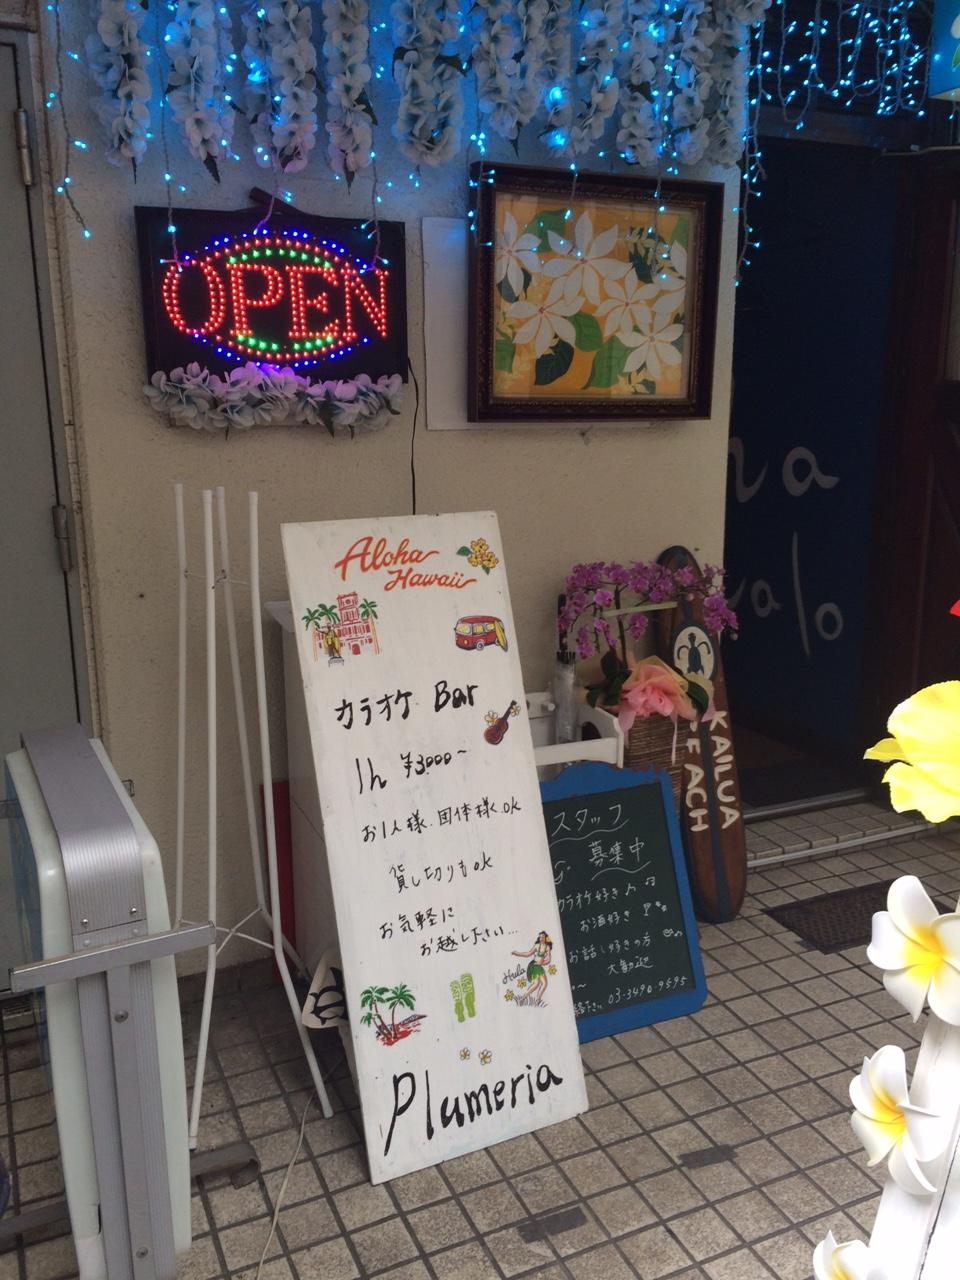 OPEN
Aloha
Hawaii
カラオケ Bar
1h ¥3,000~
お1人様、団体様、ok
貸し切りもok
お気軽に
お越し下さい...
Hula
Plumeria
スタッフ
募集中
カラオケ好き
お酒好き
お話し好きの方
大歓迎
03-3490-9595
KAILUA
BEACH